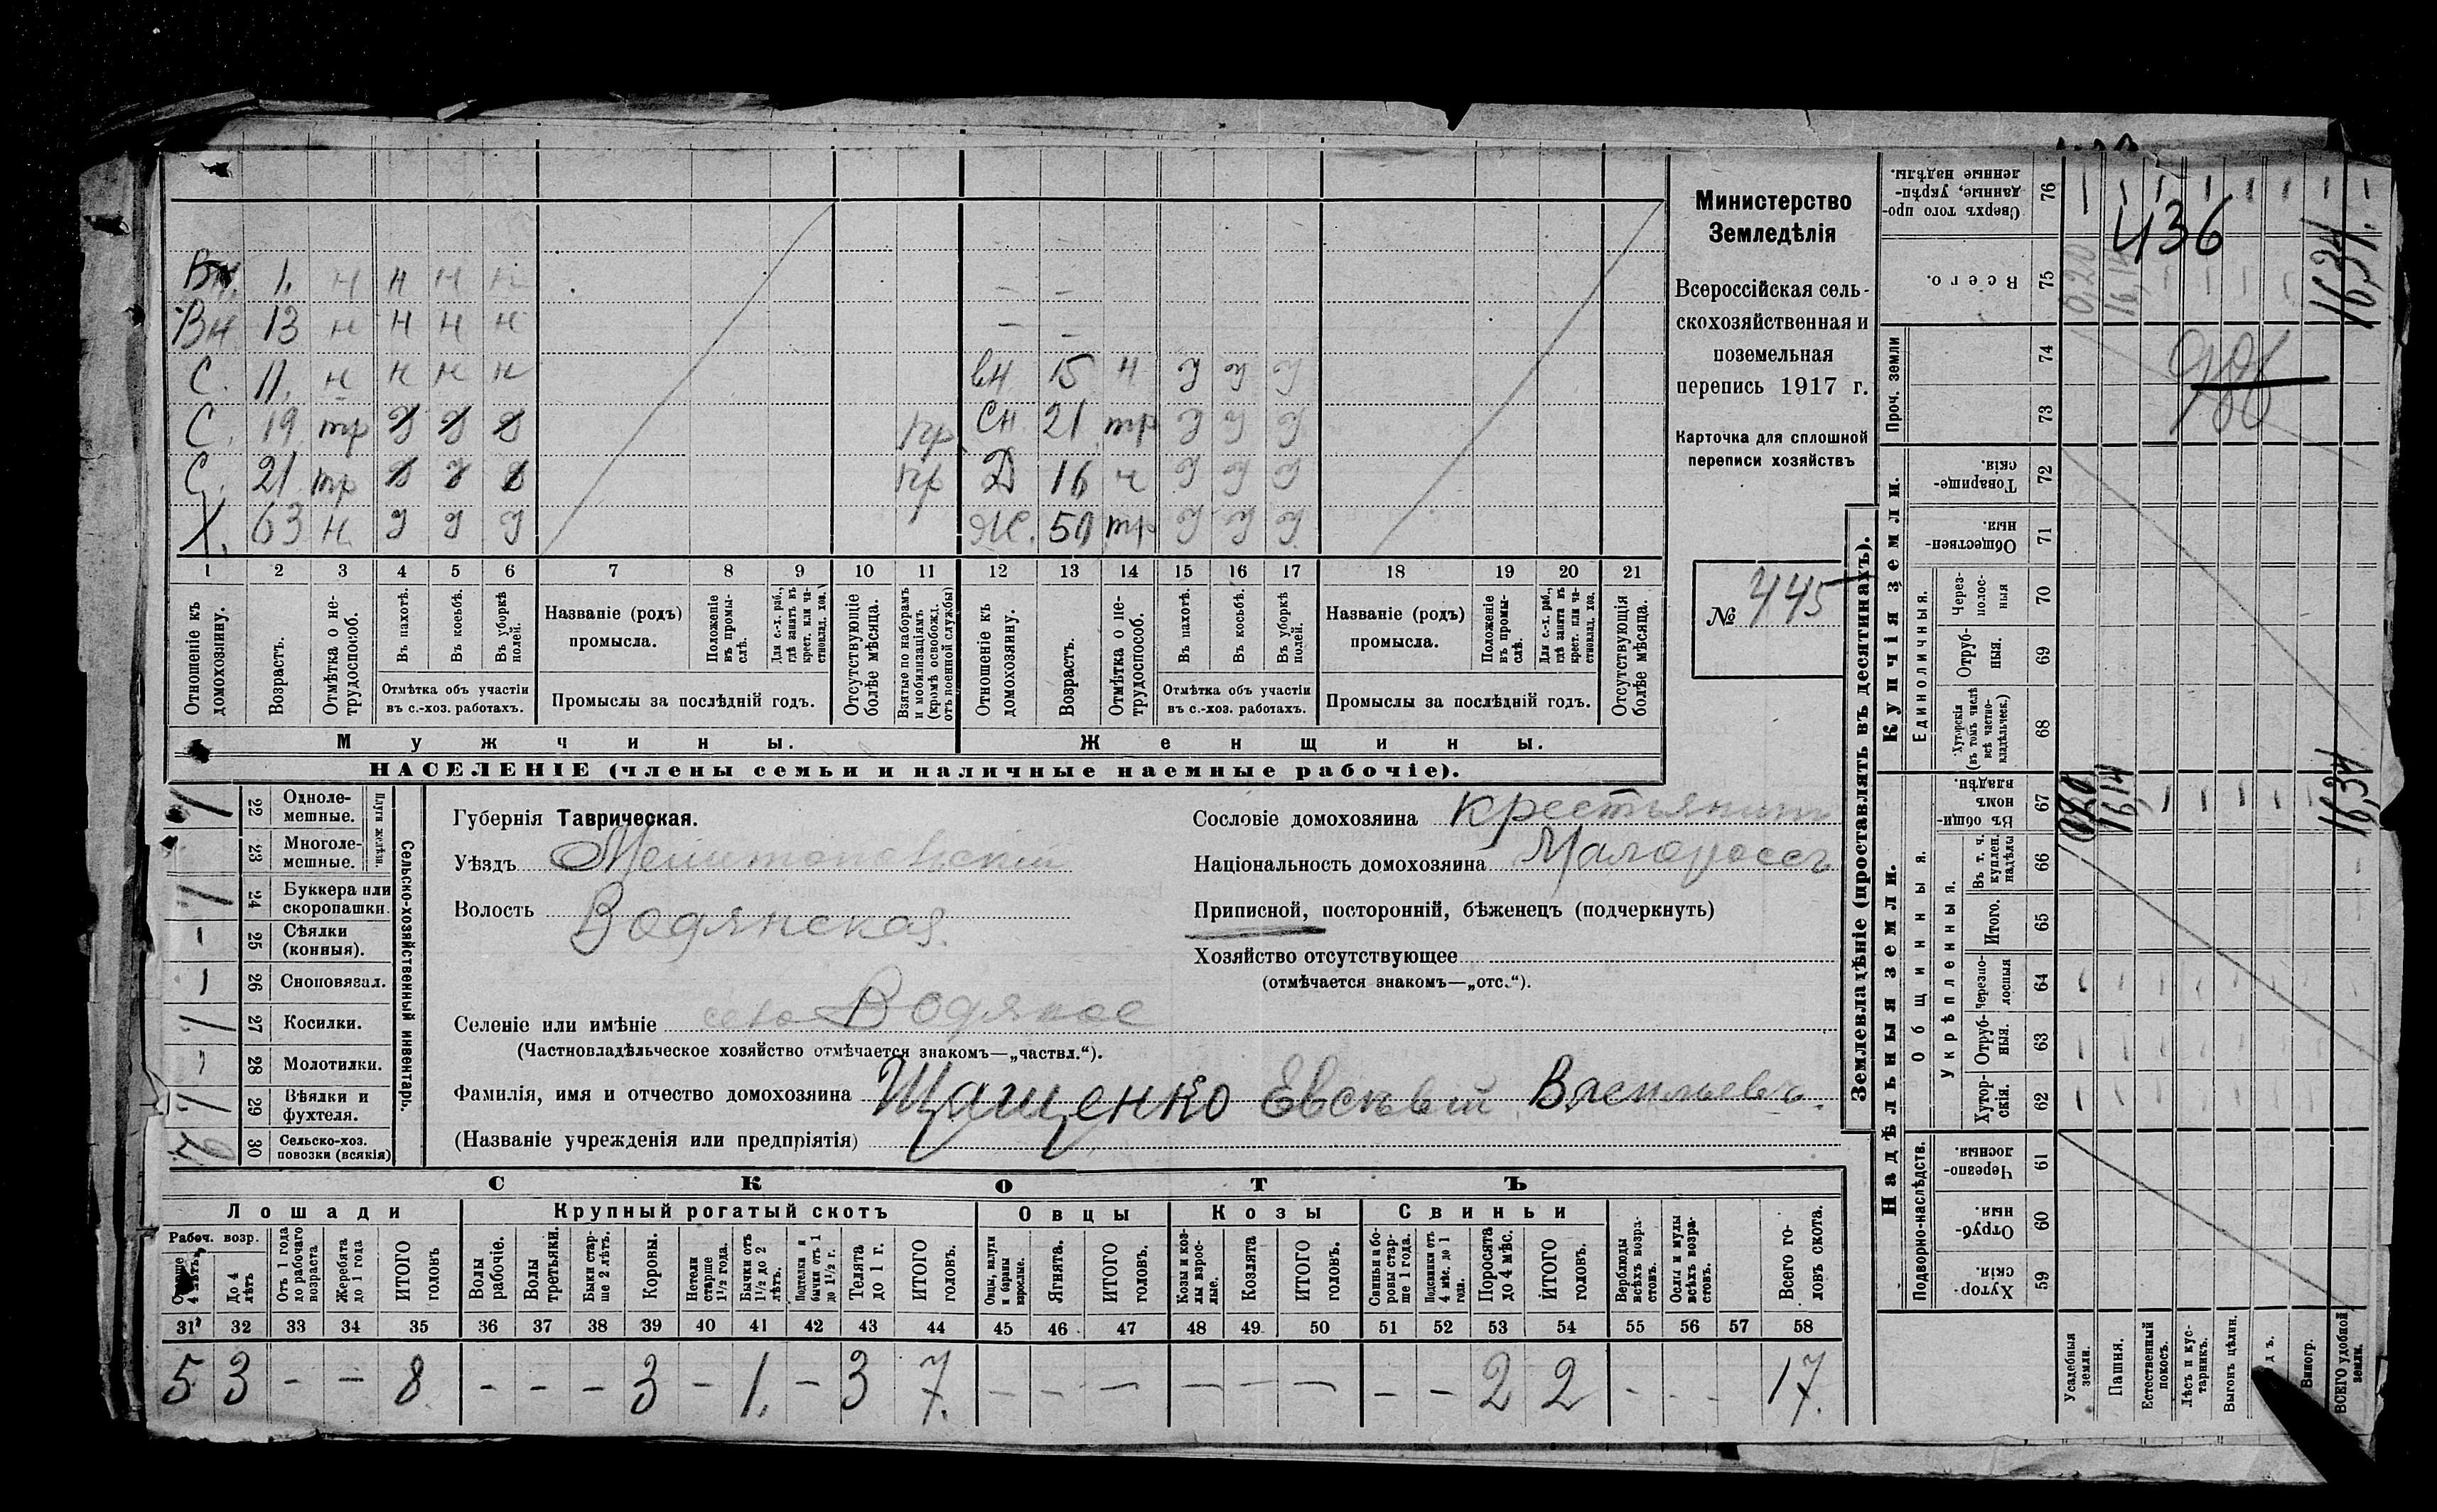 Вн. 1. н н н н
Вн 13 н н н н
С. 11. н н н н вн 15 н У У У
С. 19 тр У У У пр Сн. 21 тр У У У
С. 21 тр У У У пр Д 16 н У У У
Х. 63 н. У У У Ж. 50 тр У У У
1 2 3 4 5 6 7 8 9 10 11 12 13 14 15 16 17 18 19 20 21
Отношеніе къ домохозяину.
Возрастъ.
Отмѣтка о нетрудоспособ.
Въ пахотѣ.
Въ косьбѣ.
Въ уборкѣ полей.
Отмѣтка объ участіи
въ с.-хоз. работахъ.
Названіе (родъ)
промысла.
Положеніе въ промыслѣ.
Для с.-х. раб., гдѣ занятъ въ крест. или частновлад. хоз.
Промыслы за послѣдній годъ.
Отсутствующіе болѣе мѣсяца.
Взятые по наборамъ и мобилизаціямъ (кромѣ освобожд. отъ военной службы)
Отношеніе къ домохозяину.
Возрастъ.
Отмѣтка о нетрудоспособ.
Въ пахотѣ.
Въ косьбѣ.
Въ уборкѣ полей.
Отмѣтка объ участіи
въ с.-хоз. работахъ.
Названіе (родъ)
промысла.
Положеніе въ промыслѣ.
Для с.-х. раб., гдѣ занята въ крест. или частновлад. хоз.
Промыслы за послѣдній годъ.
Отсутствующія болѣе мѣсяца.
Мужчины. Женщины.
НАСЕЛЕНІЕ (члены семьи и наличные наемные рабочіе).
Министерство
Земледѣлія
Всероссійская сель-
скохозяйственная и
поземельная
перепись 1917 г.
Карточка для сплошной
переписи хозяйствъ
№ 445
Сельско-хозяйственный инвентарь.
Плуги желѣзн.
1 22 Однолемешные.
23 Многолемешные.
1 24 Буккера или скоропашки.
25 Сѣялки (конныя).
26 Сноповязал.
1 27 Косилки.
28 Молотилки.
1 29 Вѣялки и фухтеля.
30 Сельско-хоз. повозки (всякія)
Губернія Таврическая.
Уѣздъ Мелитопольскій
Волость Водянская.
Селеніе или имѣніе село Водяное
(Частновладѣльческое хозяйство отмѣчается знакомъ—„частвл.“).
Фамилія, имя и отчество домохозяина Щащенко Евсѣвій Васильевъ.
(Названіе учрежденія или предпріятія)
Сословіе домохозяина крестьянинъ
Національность домохозяина Малороссъ
Приписной, посторонній, бѣженецъ (подчеркнуть)
Хозяйство отсутствующее
(отмѣчается знакомъ—„отс.“).
СКОТЪ
Лошади Крупный рогатый скотъ Овцы Козы Свиньи
Рабоч. возр.
До 4 лѣтъ
Отъ 1 года до рабочаго возраста
Жеребята до 1 года
ИТОГО головъ
Волы рабочіе.
Волы третьяки.
Быки старше 2 лѣтъ.
Коровы.
Нетели старше 1½ года.
Бычки отъ 1½ до 2 лѣтъ.
Подтелки и бычки отъ 1 до 1½ г.
Телята до 1 г.
ИТОГО головъ.
Овцы, валухи и бараны взрослые.
Ягнята.
ИТОГО головъ.
Козы и козлы взрослые.
Козлята
ИТОГО головъ.
Свиньи и боровы старше 1 года.
Подсвинки отъ 4 мѣс. до 1 года.
Поросята до 4 мѣс.
ИТОГО головъ.
Верблюды всѣхъ возрастовъ.
Ослы и мулы всѣхъ возрастовъ.
Всего головъ скота.
31 32 33 34 35 36 37 38 39 40 41 42 43 44 45 46 47 48 49 50 51 52 53 54 55 56 57 58
5 3 - - 8 - - - 3 - 1. - 3 7. - - - - - - - - 2 2 - - - 17.
Землевладѣніе (проставлять въ десятинахъ).
Надѣльныя земли. Купчія земли. Проч. земли
Подворно-наслѣдств.
Общинныя.
Укрѣпленныя.
Единоличныя.
Хуторскія 59
Отрубныя. 60
Черезполосныя. 61
Хуторскія. 62
Отрубныя. 63
Черезполосныя 64
Итого. 65
Въ т. ч. куплен. надѣлы 66
Въ общинномъ владѣн. 67
Хуторскія (въ томъ числѣ всѣ частновладѣльческ.) 68
Отрубныя. 69
Черезполосныя 70
Общественныя. 71
Товарищескія. 72
73
74
Всего. 75
Сверхъ того проданные, укрѣпленные надѣлы. 76
436
0,20 16,14 16,34.
0,20 16,14 16,34
Усадебныя земли.
Пашня.
Естественный покосъ.
Лѣсъ и кустарникъ.
Выгонъ цѣлин.
Виногр.
ВСЕГО удобной земли.